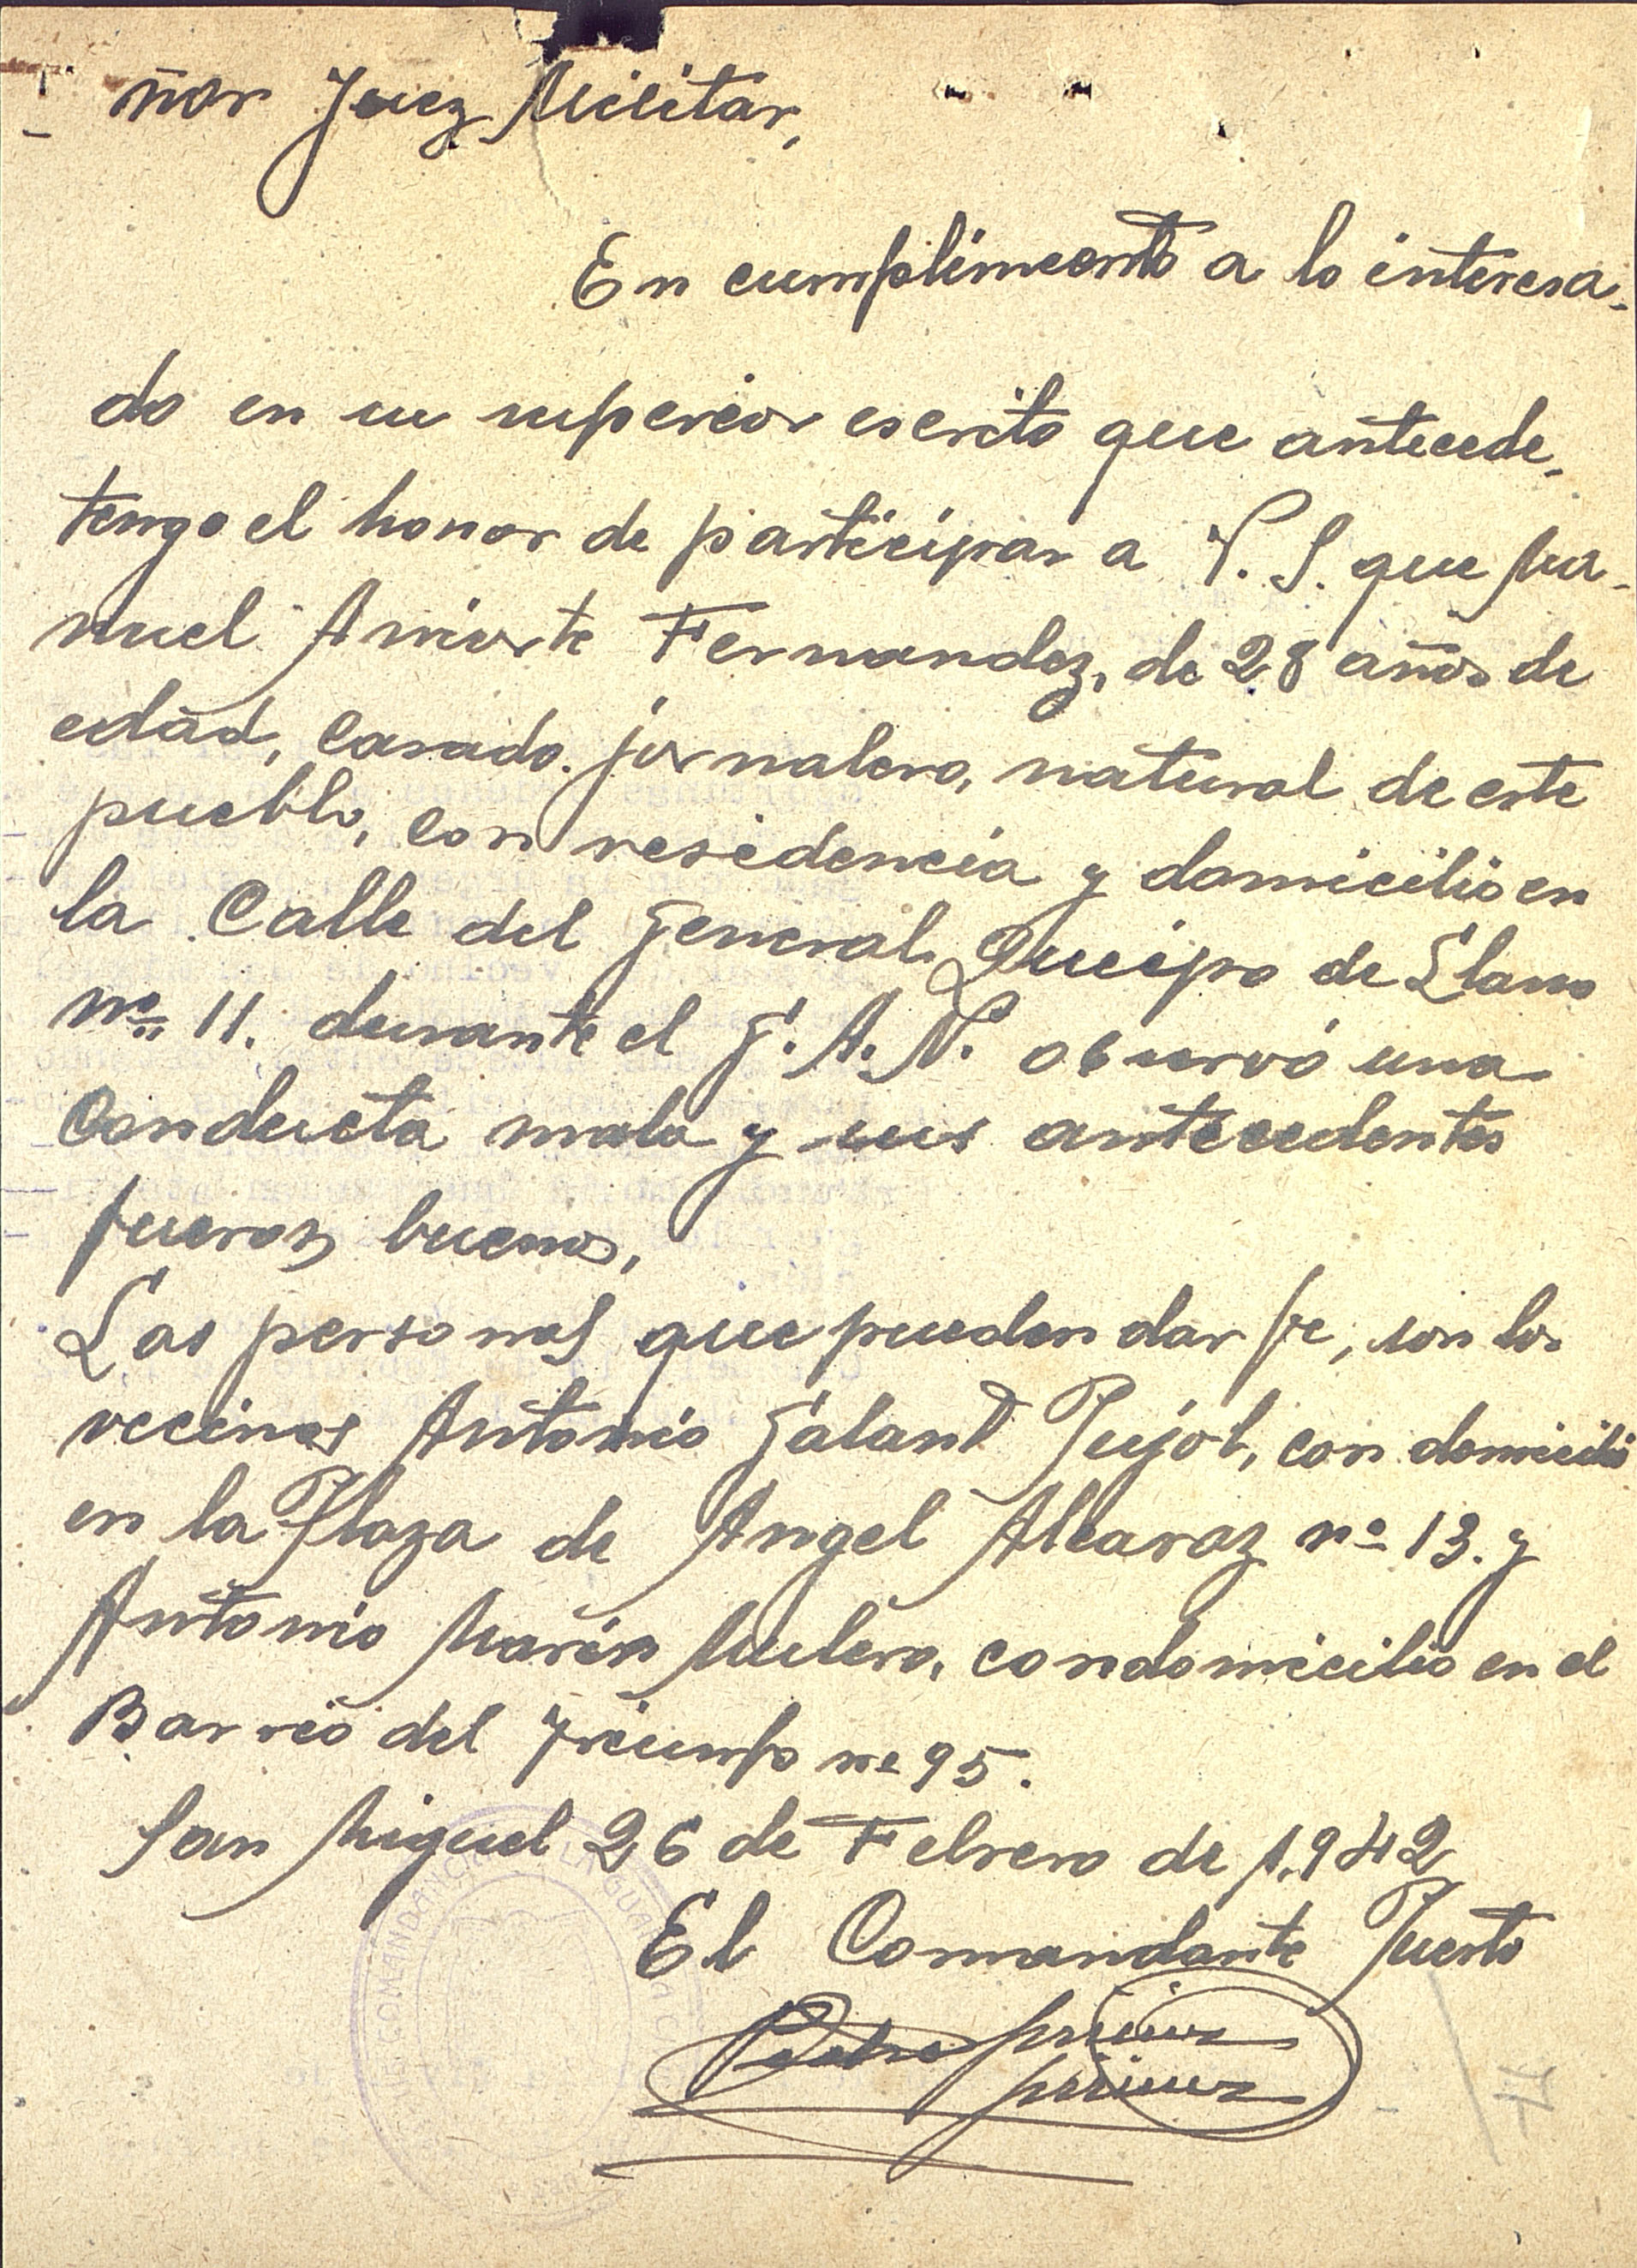 ñor Juez Militar,
En cumplimento a lo interesa-
do en su superior escrito que antecede,
tengo el honor de participar a V. S. que Ma-
nuel Aniorte Fernandez, de 28 años de
edad, casado. jornalero, natural de este
pueblo, con residencia y domicilio en
la Calle del General Queipo de Llano
nº 11. durante el G. A. N. observó una
conducta mala y sus antecedentes
fueron buenos,
Las personas que pueden dar fe, son los
vecinos Antonio Galant Pujol, con domicilio
en la Plaza de Angel Alcaraz nº 13. y
Antonio Marín Mulero, con domicilio en el
Barrio del Triunfo nº 95.
San Miguel 26 de Febrero de 1.942
El Comandante Puesto
Pedro
COMANDANCIA LA GUARDIA C